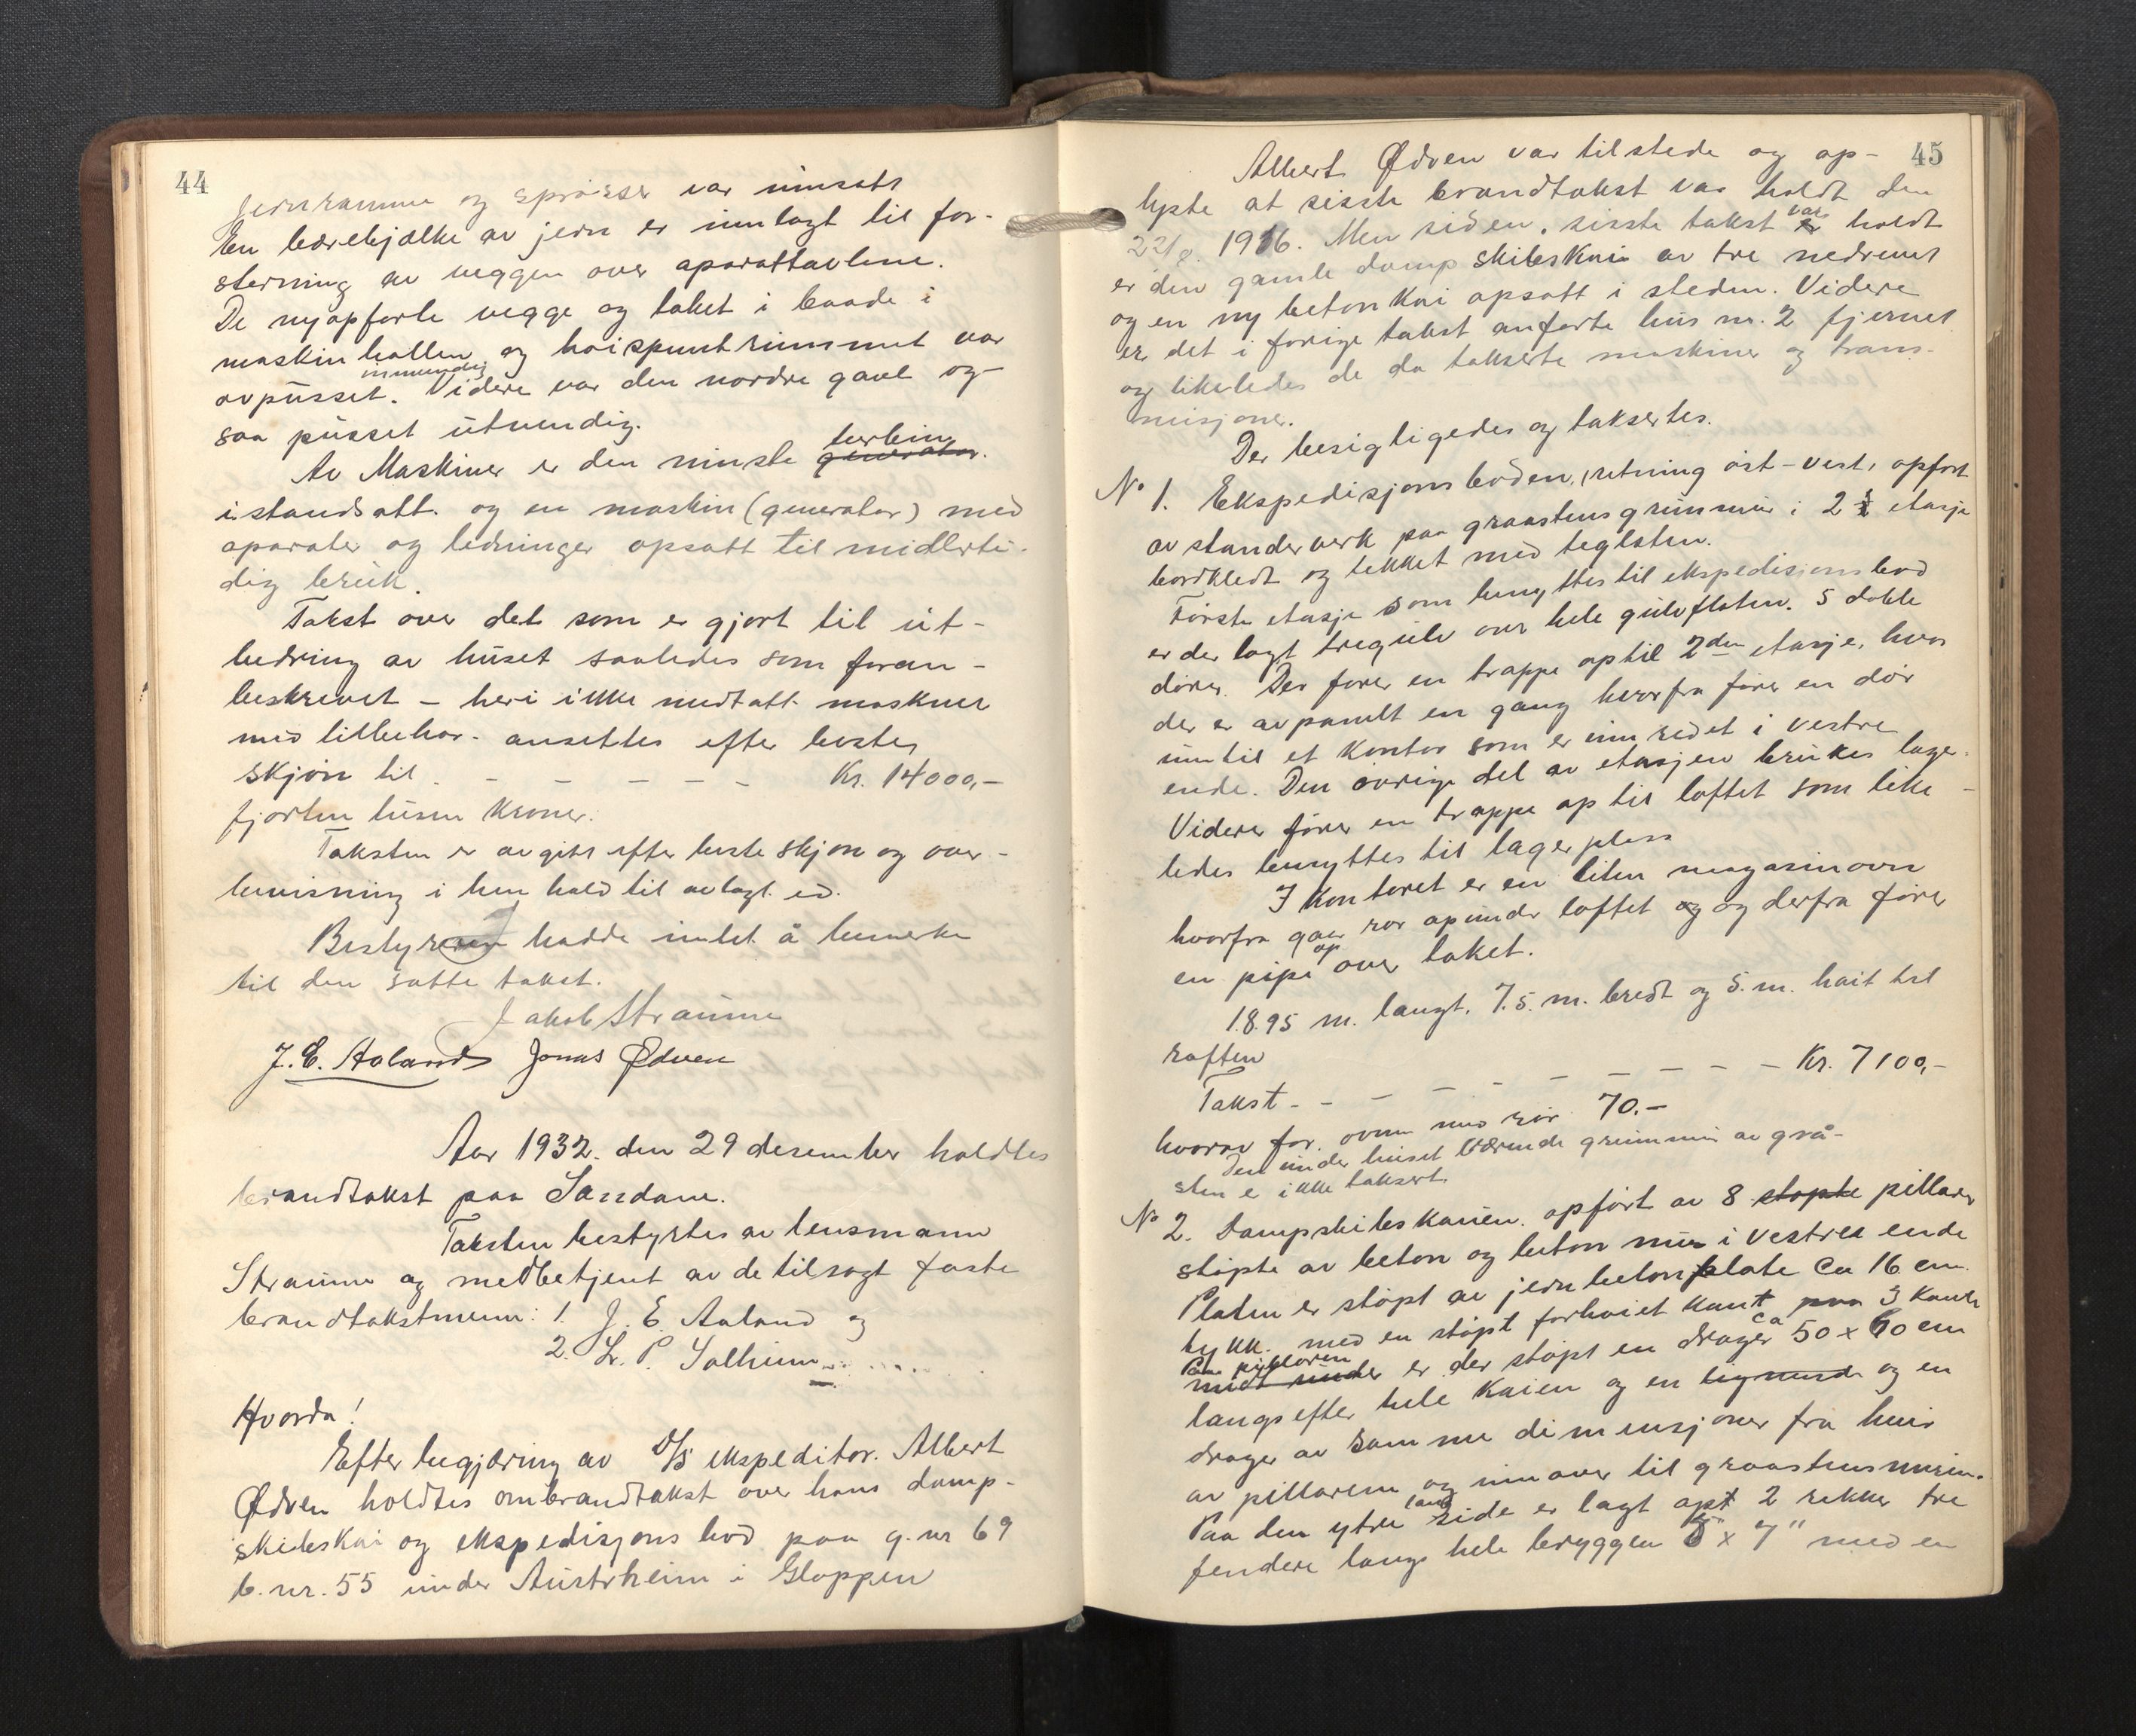 44
jernramme og sprosser var innsatt
En bærebjælke av jern er innlagt til for-
sterning av veggen over aparattavlene.
De nyopførte vegge og taket i baade i
maskinhallen og høispentrummet var
innvendig
avpusset. Videre var den nordre gavl og-
saa pusset utvendig.
turbin
Av Maskiner er den minste generator.
istandsatt. og en maskin (generator) med
aparater og ledninger opsatt til midlerti-
dig bruk.
Takst over det som er gjort til ut-
bedring av huset saaledes som foran-
beskrevet - heri ikke medtatt maskner
med tilbehør - ansettes efter beste
skjøn til - - - - - - Kr. 14000,-
fjorten tusen kroner.
Taksten er avgitt efter beste skjøn og over-
bevisning i henhold til avlagt ed.
Bestyreren hadde intet å bemerke
til den satte takst.
Jakob Straume
J. E. Aaland Jonas Ødven
Aar 1932. den 29 desember holdtes
brandtakst paa Sandane.
Taksten bestyrtes av lensmann
Straume og medbetjent av de tilsagt faste
brandtakstmenn: 1. J. E. Aaland og
2. L. P. Solheim
Hvorda!
Efter begjæring av D/S ekspeditør. Albert
Ødven holdtes ombrandtakst over hans damp-
skibskai og ekspedisjons bod paa g. nr 69
b. nr. 55 under Austrheim i Gloppen
45
Albert Ødven var tilstede og op-
lyste at siste brandtakst var holdt den
22/8. 1916. Men siden, siste takst var holdt
er den gamle dampskibskai av tre nedrevet
og en ny beton kai opsatt i steden. Videre
er det i forige takst anførte hus nr. 2 fjernet
og likeledes de da takserte maskiner og trans-
misjoner.
Der besigtigedes og taksertes.
No 1. Ekspedisjonsboden, retning øst-vest, opført
av standerverk paa graastensgrunmur i 2 ½ etasje
bordkledt og tekket med teglsten.
Første etasje som benyttes til ekspedisjonsbod
er der lagt tregulv over hele gulvflaten. 5 doble
dører. Der fører en trappe op til 2den etasje, hvor
der er avpanelt en gang hvorfra fører en dør
inn til et kontor som er innredet i vestre
ende. Den øvrige del av etasjen brukes lager.
Videre fører en trappe op til loftet som like-
ledes benyttes til lagerplass
I kontoret er en liten magasinovn
hvorfra gaar rør opunder loftet og og derfra fører
op
en pipe over taket.
18.95 m. langt. 7.5. m. bredt og 5. m. høit til
raften
Takst - - - - - - - - - Kr. 7100,-
hvorav for ovnen med rør 70.-
Den under huset værende grunmur av grå-
sten er ikke taksert.
No 2. Dampskibskaien. opført av 8 støpte pillarer
støpte av beton og beton mur i vestre ende
Platen er støpt av jernbetonplate ca 16 cm.
tykk. med en støpt forhøiet kant paa 3 kanter
Paa pillaren ca
midt under er der støpt en drager 50 x 60 cm
langs efter hele kaien og en lignende og en
drager av samme dimensjoner fra hver
av pillarene og innover til graastensmuren.
lang
Paa den ytre side er lagt opt 2 rekker tre
fendere langs hele bryggen 8" x 7" med en